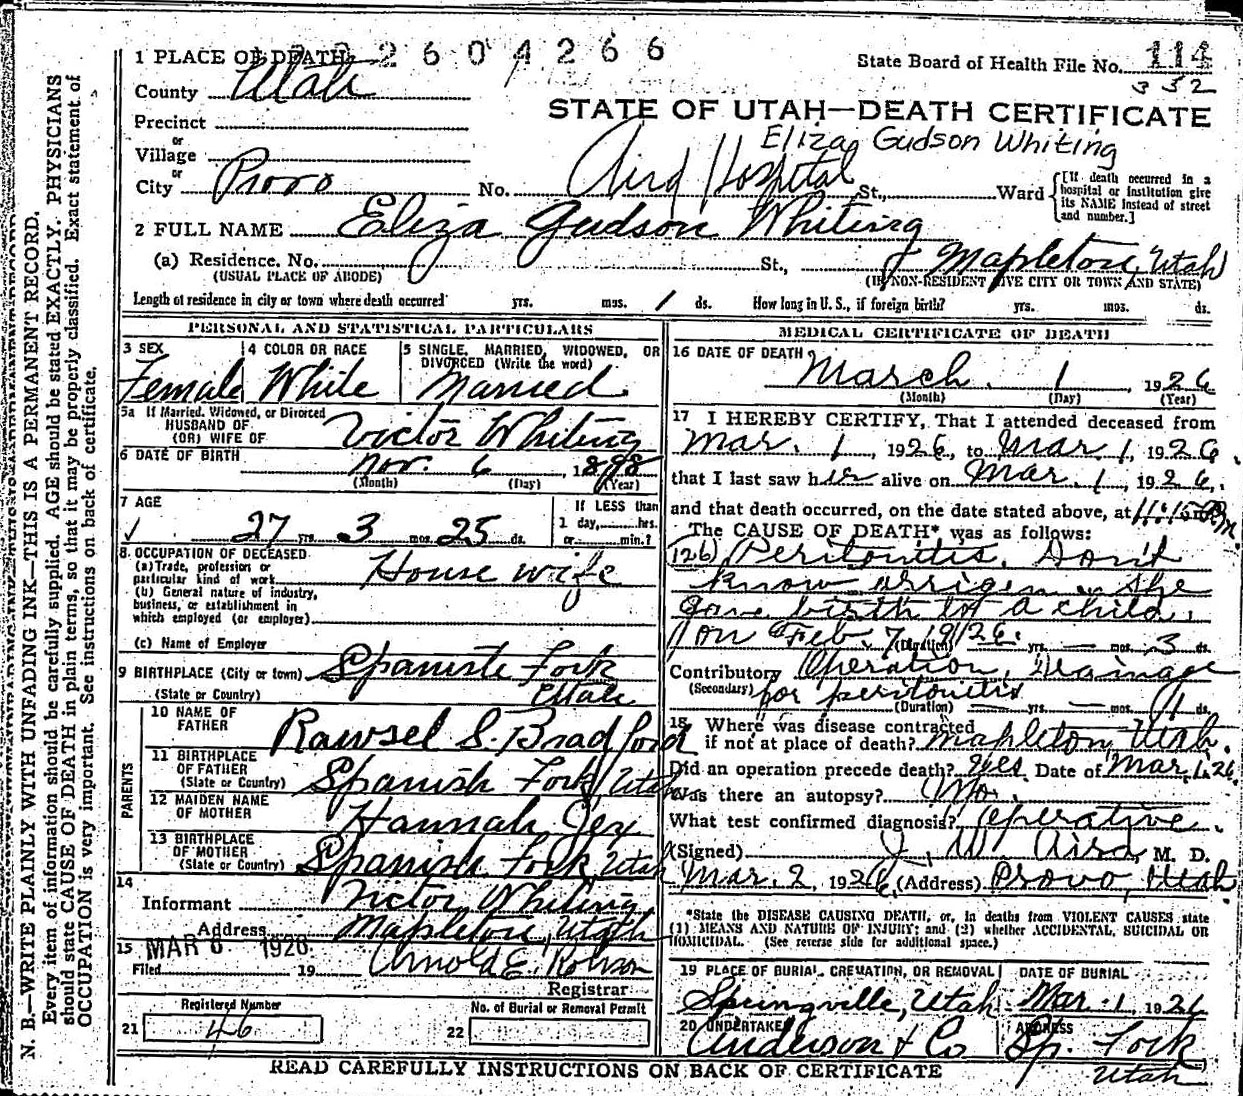 N. B.—WRITE PLAINLY WITH UNFADING INK—THIS IS A PERMANENT RECORD.
Every item of information should be carefully supplied. AGE should be stated EXACTLY. PHYSICIANS
should state CAUSE OF DEATH in plain terms, so that it may be properly classified. Exact statement of
OCCUPATION is very important. See instructions on back of certificate.
2604266
1 PLACE OF DEATH
State Board of Health File No. 114
352
County Utah
STATE OF UTAH—DEATH CERTIFICATE
Precinct
Eliza Gudson Whiting
or
Village
or
City Provo No. Aird Hospital St., Ward
[If death occurred in a
hospital or institution give
its NAME instead of street
and number.]
2 FULL NAME Eliza Gudson Whiting
(a) Residence. No. St., Mapleton, Utah
(USUAL PLACE OF ABODE) (IF NON-RESIDENT GIVE CITY OR TOWN AND STATE)
Length of residence in city or town where death occurred yrs. mos. 1 ds. How long in U. S., if foreign birth? yrs. mos. ds.
PERSONAL AND STATISTICAL PARTICULARS
3 SEX 4 COLOR OR RACE 5 SINGLE, MARRIED, WIDOWED, OR
DIVORCED (Write the word)
Female White Married
5a If Married, Widowed, or Divorced
HUSBAND OF
(OR) WIFE OF Victor Whiting
6 DATE OF BIRTH Nov. 6, 1898
(Month) (Day) (Year)
7 AGE If LESS than
27 yrs. 3 mos. 25 ds. 1 day, hrs.
or min.?
8. OCCUPATION OF DECEASED
(a) Trade, profession or
particular kind of work House wife
(b) General nature of industry,
business, or establishment in
which employed (or employer)
(c) Name of Employer
9 BIRTHPLACE (City or town) Spanish Fork
(State or Country) Utah
PARENTS
10 NAME OF
FATHER Rawsel S. Bradford
11 BIRTHPLACE
OF FATHER
(State or Country) Spanish Fork, Utah
12 MAIDEN NAME
OF MOTHER Hannah Jex
13 BIRTHPLACE
OF MOTHER
(State or Country) Spanish Fork, Utah
14
Informant Victor Whiting
Address Mapleton, Utah
15 MAR 1926
Filed 19 Arnold E. Robison
Registrar
Registered Number No. of Burial or Removal Permit
21 46 22
MEDICAL CERTIFICATE OF DEATH
16 DATE OF DEATH
March 1, 1926
(Month) (Day) (Year)
17 I HEREBY CERTIFY, That I attended deceased from
Mar. 1, 1926, to Mar. 1, 1926.
that I last saw her alive on Mar. 1, 1926,
and that death occurred, on the date stated above, at 11:15 P.m.
The CAUSE OF DEATH* was as follows:
(126) Peritonitis. Don't
know orrigen. She
gave birth to a child.
on Feb. 7, 1926. (Duration) yrs. — mos. 3 ds.
Contributory Operation, Drainage
(Secondary) for peritonitis
(Duration) — yrs. — mos. 1 ds.
18 Where was disease contracted
if not at place of death? Mapleton, Utah.
Did an operation precede death? Yes. Date of Mar. 1, 26
Was there an autopsy? No.
What test confirmed diagnosis? Operative.
(Signed) J. W. Aird, M. D.
Mar. 2, 1926, (Address) Provo, Utah
*State the DISEASE CAUSING DEATH, or, in deaths from VIOLENT CAUSES state
(1) MEANS AND NATURE OF INJURY; and (2) whether ACCIDENTAL, SUICIDAL OR
HOMICIDAL. (See reverse side for additional space.)
19 PLACE OF BURIAL, CREMATION, OR REMOVAL DATE OF BURIAL
Springville, Utah Mar. 1926
20 UNDERTAKER ADDRESS
Anderson & Co Sp. Fork
Utah
READ CAREFULLY INSTRUCTIONS ON BACK OF CERTIFICATE